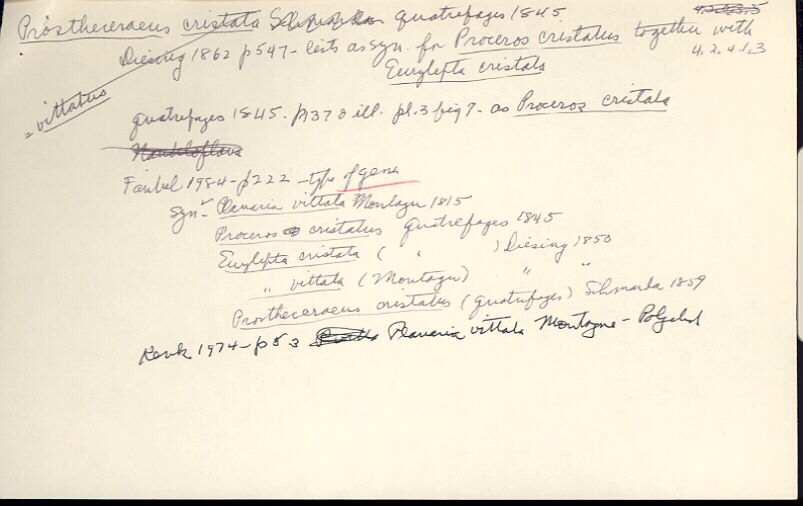 Prostheceraeus cristata Quatrefages 1845
4.2.4.1.3
Diesing 1862 p547 - lists as syn. for Proceros cristatus together with
Eurylepta cristata
= vittatus
Quatrefages 1845. p137 & ill. pl.3 fig 7. as Proceros cristata
Faubel 1984 - p222 - type of genus
Syn - Planaria vittata Montagu 1815
Proceros cristatus Quatrefages 1845
Eurylepta cristata ( " ) Diesing 1850
" vittata (Montagu) " "
Prostheceraeus cristatus (Quatrefages) Schmarda 1859
Kenk 1974 - p53 Planaria vittata Montague - Polyclad